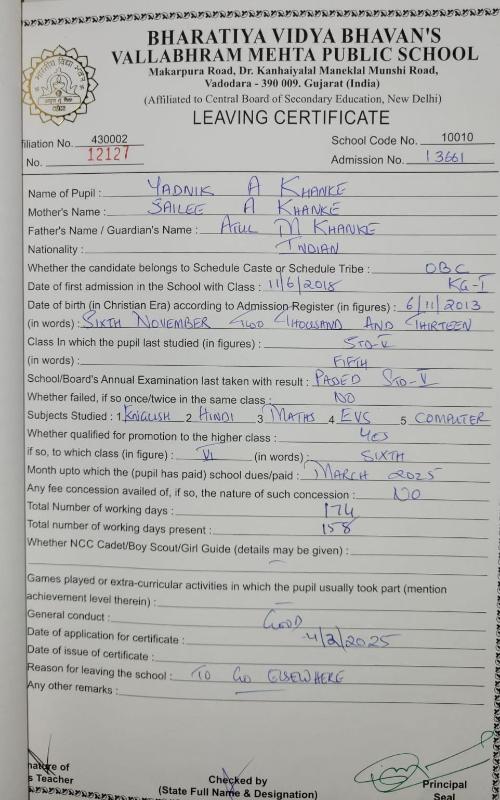 BHARATIYA VIDYA BHAVAN'S
VALLABHRAM MEHTA PUBLIC SCHOOL
Makarpura Road, Dr. Kanhaiyalal Maneklal Munshi Road,
Vadodara - 390 009. Gujarat (India)
(Affiliated to Central Board of Secondary Education, New Delhi)
LEAVING CERTIFICATE
filiation No. 430002 School Code No. 10010
No. 12127 Admission No. 13661
Name of Pupil : YADNIK A KHANKE
Mother's Name : SAILEE A KHANKE
Father's Name / Guardian's Name : ATUL M KHANKE
Nationality : INDIAN
Whether the candidate belongs to Schedule Caste or Schedule Tribe : OBC
Date of first admission in the School with Class : 11/6/2018 KG-I
Date of birth (in Christian Era) according to Admission Register (in figures) : 6/11/2013
(in words) : SIXTH NOVEMBER TWO THOUSAND AND THIRTEEN
Class In which the pupil last studied (in figures) : STD-V
(in words) : FIFTH
School/Board's Annual Examination last taken with result : PASED STD-V
Whether failed, if so once/twice in the same class : NO
Subjects Studied : 1. ENGLISH 2 HINDI 3 MATHS 4 EVS 5 COMPUTER
Whether qualified for promotion to the higher class : YES
if so, to which class (in figure) : VI (in words) : SIXTH
Month upto which the (pupil has paid) school dues/paid : MARCH 2025
Any fee concession availed of, if so, the nature of such concession : NO
Total Number of working days : 174
Total number of working days present : 158
Whether NCC Cadet/Boy Scout/Girl Guide (details may be given) :
Games played or extra-curricular activities in which the pupil usually took part (mention
achievement level therein) :
General conduct : GOOD
Date of application for certificate : 4/3/2025
Date of issue of certificate :
Reason for leaving the school : TO GO ELSEWHERE
Any other remarks :
nature of
s Teacher
Checked by
(State Full Name & Designation)
Principal
Seal